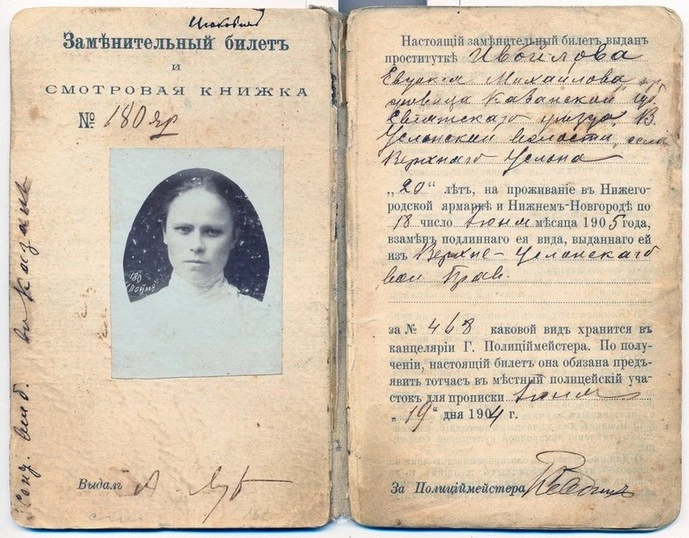 Замѣнительный билетъ
и
СМОТРОВАЯ КНИЖКА
№ 180 яр
180
Выдалъ
Настоящій замѣнительный билетъ выданъ
проституткѣ Ивойлова
Евдокія Михайлова кр
Казанской гу.
Свіяжскаго уѣзда, В.
Услонской волости, села
Верхняго Услона
„20“ лѣтъ, на проживаніе въ Нижего-
родской ярмаркѣ и Нижнемъ-Новгородѣ по
18 число іюня мѣсяца 1905 года,
взамѣнъ подлиннаго ея вида, выданнаго ей
изъ Верхне-Услонскаго
вол. Прав.
за № 468 каковой видъ хранится въ
канцеляріи Г. Полиціймейстера. По полу-
ченіи, настоящій билетъ она обязана предъ-
явить тотчасъ въ мѣстный полицейскій уча-
стокъ для прописки іюня
„19“ дня 1904 г.
За Полиціймейстера